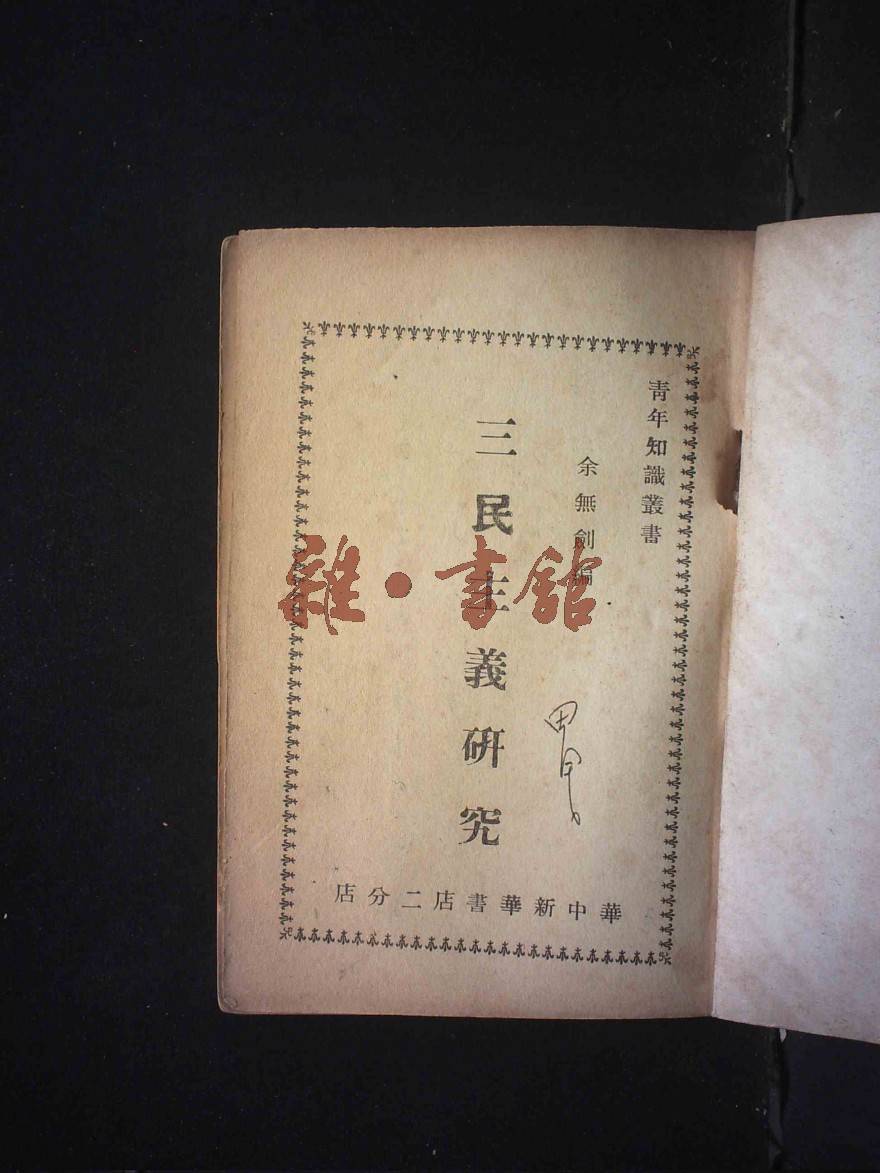 青年知識叢書
余無劍編
三民主義研究
華中新華書店二分店
雜·書館